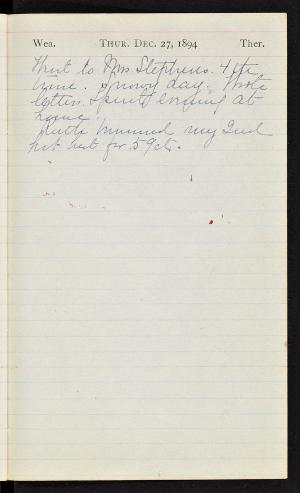 Wea. THUR. DEC. 27, 1894 Ther.
Went to Mrs Stephens. 4th
time. Snowy day. Wrote
letters. Spent evening at
home.
Ruth trimmed my 2nd
hat for 59cts.